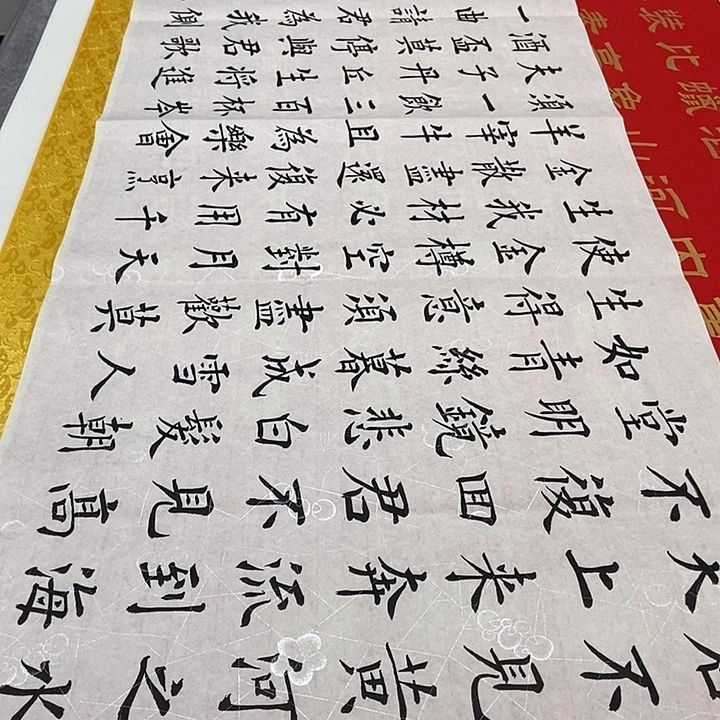 君不見黃河之水
天上來奔流到海
不復回君不見高
堂明鏡悲白髮朝
如青絲暮成雪人
生得意須盡歡莫
使金樽空對月天
生我材必有用千
金散盡還復來烹
羊宰牛且為樂會
須一飲三百杯岑
夫子丹丘生將進
酒盃莫停與君歌
一曲請君為我側